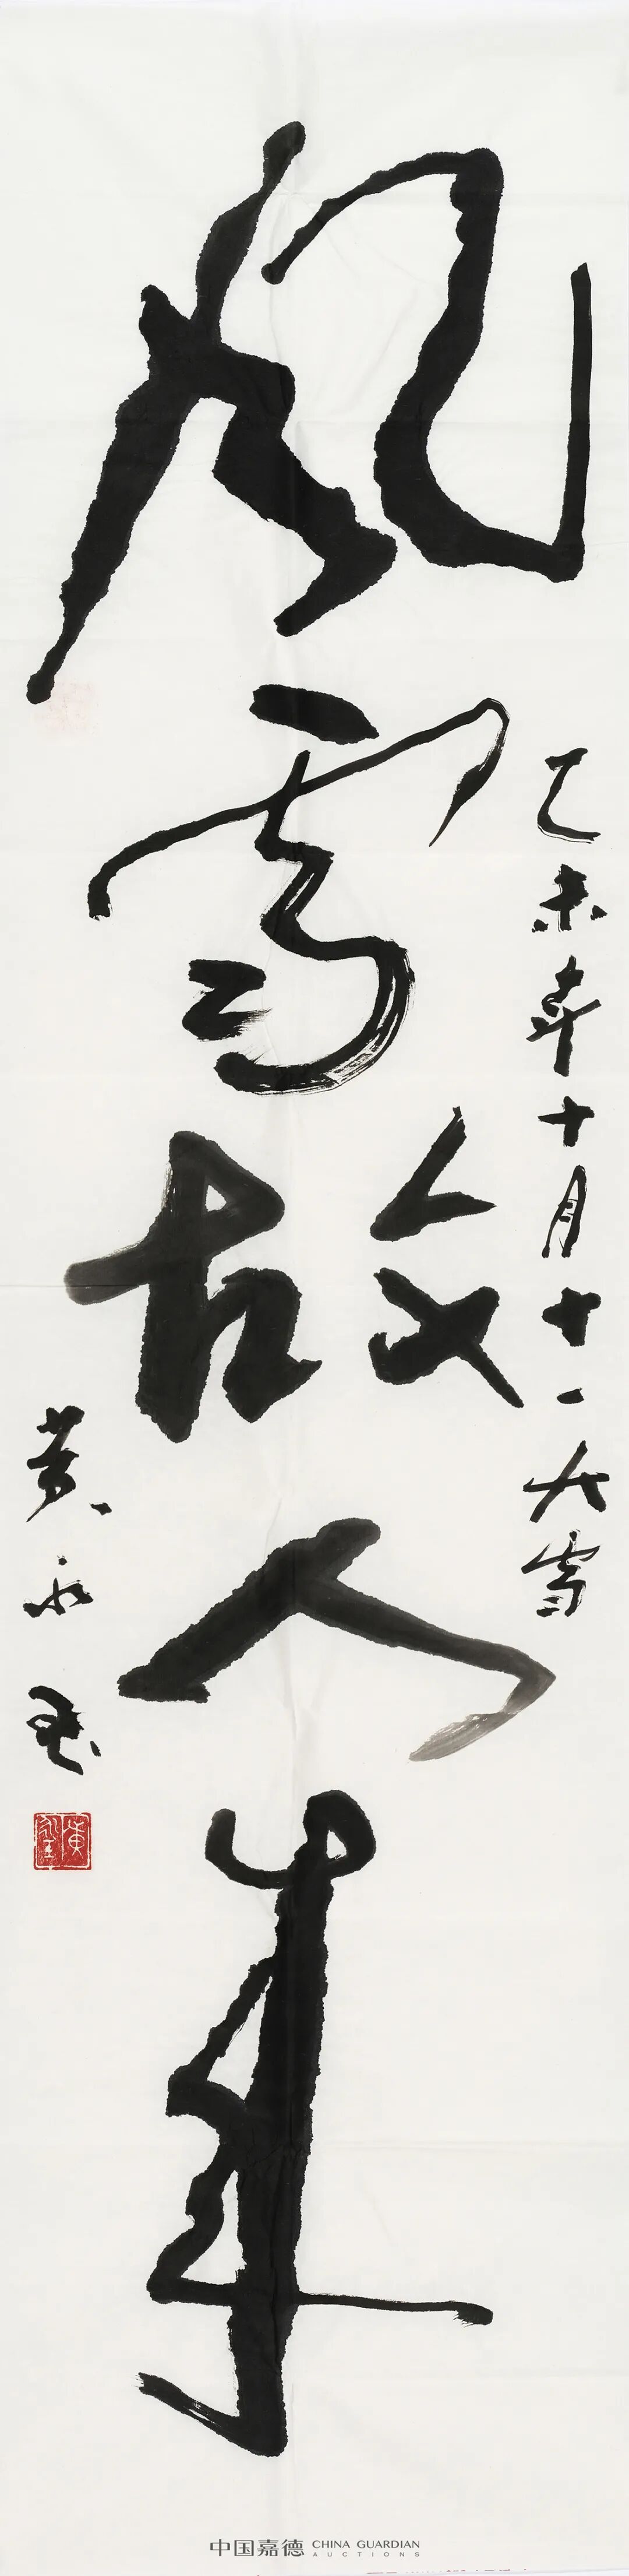 乙未年十月十一大雪
風雪故人來
黄永玉
中国嘉德 CHINA GUARDIAN
AUCTIONS